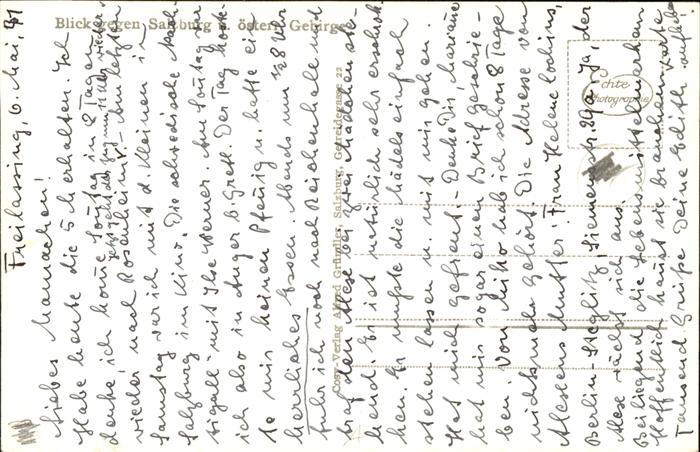 Blick gegen Salzburg u. österr. Gebirge
Echte
Photographie
Copr. Verlag Alfred Gründler, Salzburg, Getreidegasse 22
Freilassing, 6. Mai, 41
Liebes Mamachen!
Habe heute die 5 M erhalten. Ich
denke, ich komme Sonntag in 8 Tagen
wieder nach Rosenheim. Am letzten
Samstag war ich mit d. Kleinen in
Salzburg im Kino. "Die schwedische Nach-
tigall" mit Ilse Werner. Am Sonntag war
ich also in Anger b. Gretl. Der Tag koste-
te mir keinen Pfennig u. hatte ein
herrliches Essen. Abends um 1/2 8 Uhr
fuhr ich noch nach Reichenhall und
traf den Alex bei zwei Mädchen ste-
hend. Er ist natürlich sehr erschrok-
ken. Er mußte die Mädels einfach
stehen lassen u. mit mir gehen.
Hat mich gefreut. - Denke Dir,
hat mir sogar einen Brief geschrie-
ben. Von Mirko hab ich schon 8 Tage
nichts mehr gehört. Die Adresse von
Alexens Mutter: Frau Helene
Berlin-Steglitz, Siemensstr. 29a. Ja, der
Alex
Beiliegend die Lebensmittelmarken
Hoffentlich kannst sie brauchen.
Tausend Grüße Deine Edith